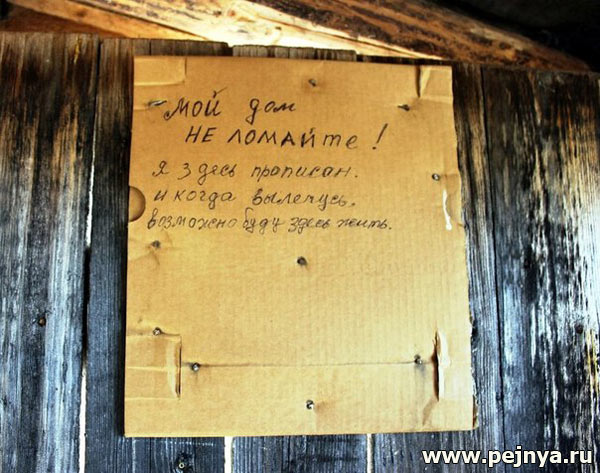 мой дом
НЕ ЛОМАЙте!
Я здесь прописан.
и когда вылечусь,
возможно буду здесь жить.
www.pejnya.ru